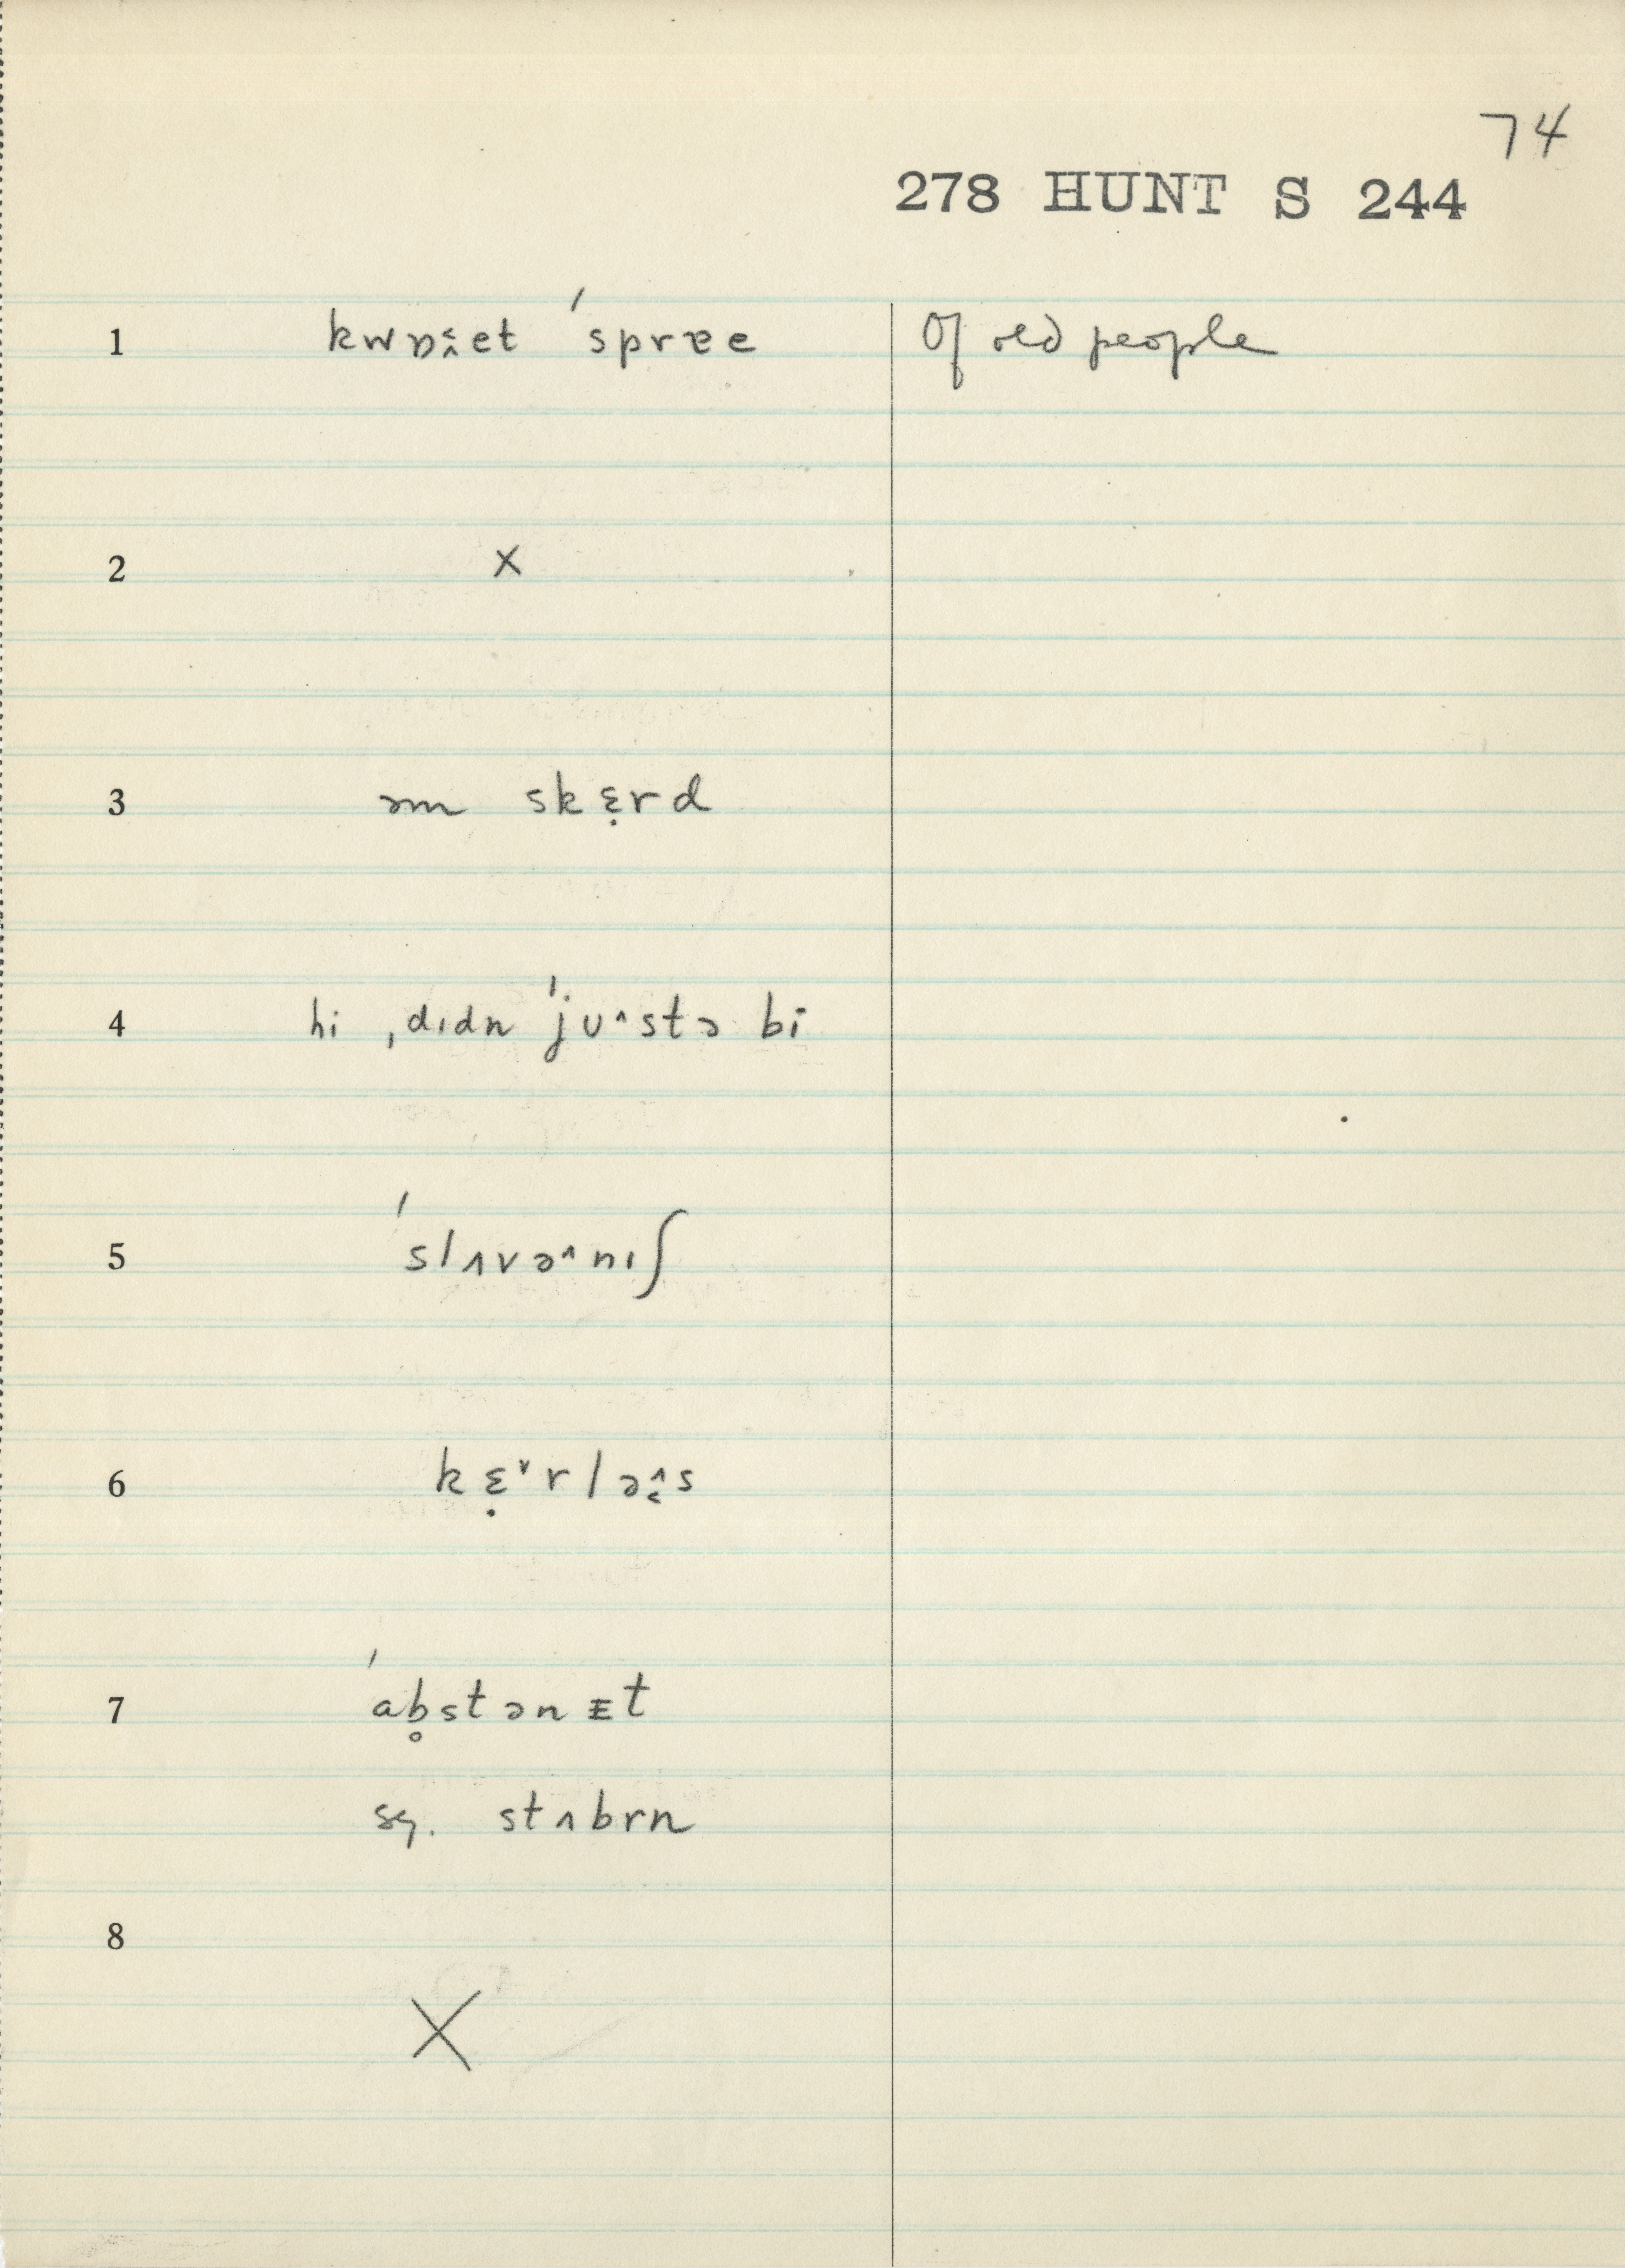 74
278 HUNT S 244
1 kwɒɛ̭et ˈsprɐe Of old people
2 x
3 əm skɛ̣rd
4 hi ˌdɪdn ˈjuˆstə bi
5 ˈslʌvəˆnɪʃ
6 kɛ̣ˇrləɛ̂s
7 ˈab̥stənᴇt
sg. stʌbrn
8
X